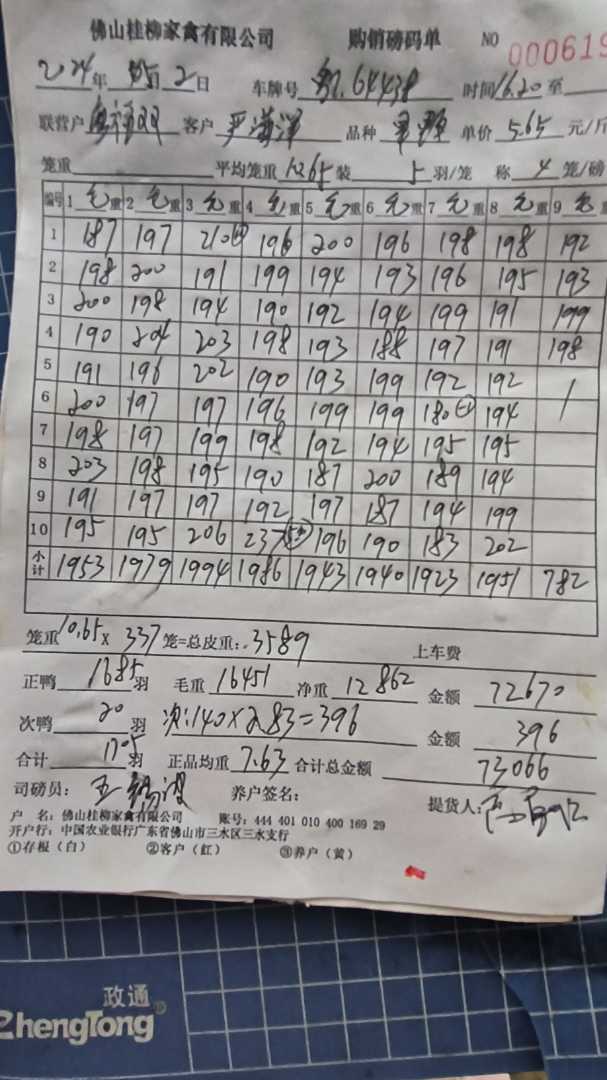 佛山桂柳家禽有限公司 购销磅码单 NO 000619
2024年 5月 2日 车牌号 64438 时间 16.20 至
联营户 客户 严海洋 品种 单价 5.65 元/斤
笼重 平均笼重 10.65 装 5 羽/笼 称 4 笼/磅
编号 1 毛重 2 毛重 3 毛重 4 毛重 5 毛重 6 毛重 7 毛重 8 毛重 9 毛重
1 187 197 210 196 200 196 198 198 192
2 198 200 191 199 194 193 196 195 193
3 200 198 194 190 192 194 199 191 199
4 190 204 203 198 193 188 197 191 198
5 191 196 202 190 193 199 192 192 /
6 200 197 197 196 199 199 180 194
7 198 197 199 198 192 194 195 195
8 203 198 195 190 187 200 189 194
9 191 197 197 192 197 187 194 199
10 195 195 206 237 196 190 183 202
小计 1953 1979 1994 1986 1943 1940 1923 1951 782
笼重 10.65 x 337 笼=总皮重: 3589 上车费
正鸭 1685 羽 毛重 16451 净重 12862 金额 72670
次鸭 20 羽 次:140×2.83=396 金额 396
合计 1705 羽 正品均重 7.63 合计总金额 73066
司磅员: 养户签名: 提货人:
户 名: 佛山桂柳家禽有限公司 账号: 444 401 010 400 169 29
开户行: 中国农业银行广东省佛山市三水区三水支行
①存根(白) ②客户(红) ③养户(黄)
政通
ZhengTong